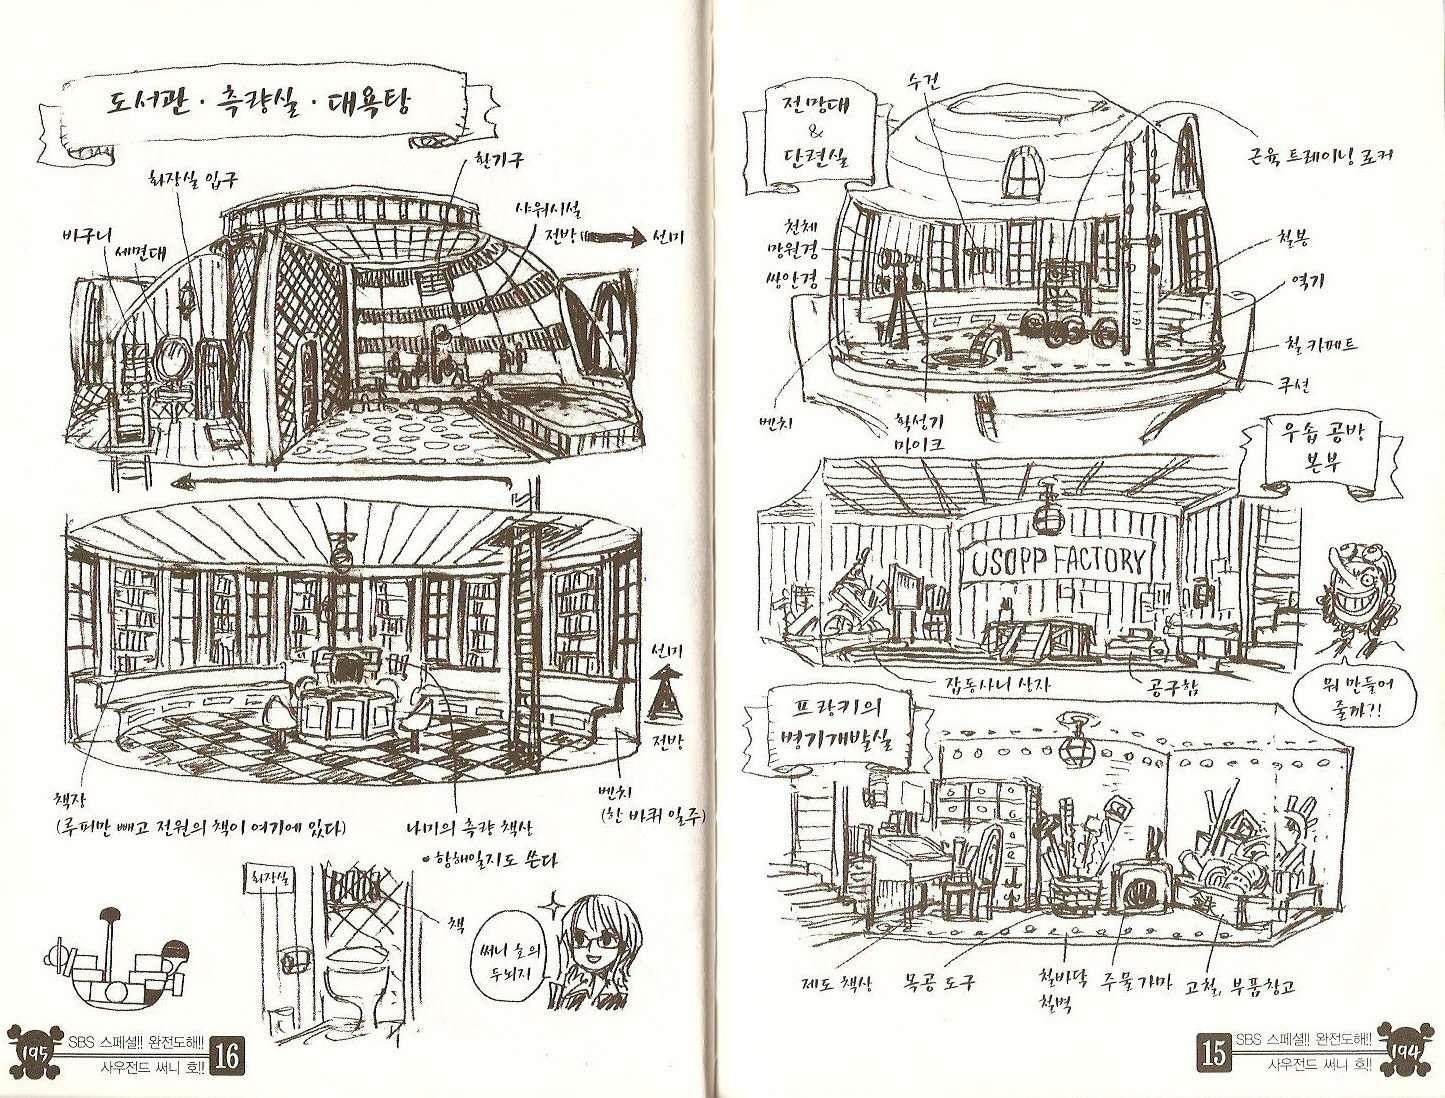 도서관·측량실·대욕탕
환기구
화장실 입구
샤워시설
전방
선미
바구니
세면대
선미
전방
책장
(루피만 빼고 전원의 책이 여기에 있다)
나미의 측량 책상
•항해일지도 쓴다
벤치
(한 바퀴 일주)
화장실
책
써니 호의
두뇌지
195
SBS 스페셜!! 완전도해!!
사우전드 써니 호!!
16
전망대
&
단련실
수건
근육 트레이닝 로커
천체
망원경
쌍안경
철봉
역기
철 카페트
쿠션
벤치
확성기
마이크
우솝 공방
본부
USOPP FACTORY
잡동사니 상자
공구함
뭐 만들어
줄까?!
프랑키의
병기개발실
제도 책상
목공 도구
철바닥
철벽
주물가마
고철, 부품창고
15
SBS 스페셜!! 완전도해!!
사우전드 써니 호!!
194